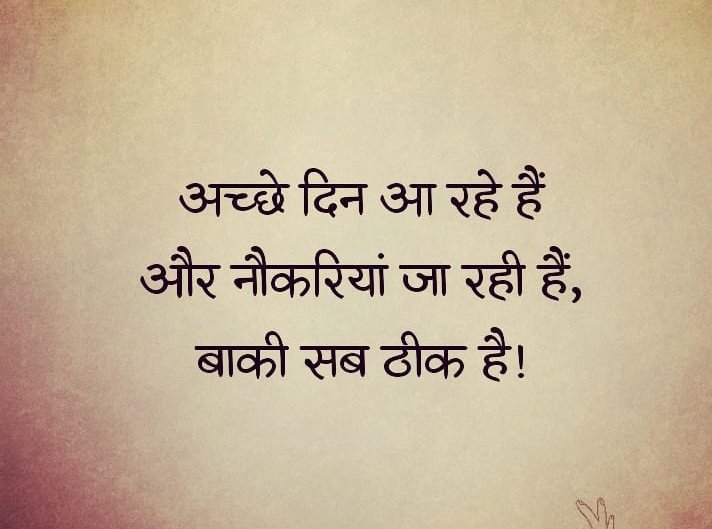 अच्छे दिन आ रहे हैं
और नौकरियां जा रही हैं,
बाकी सब ठीक है!